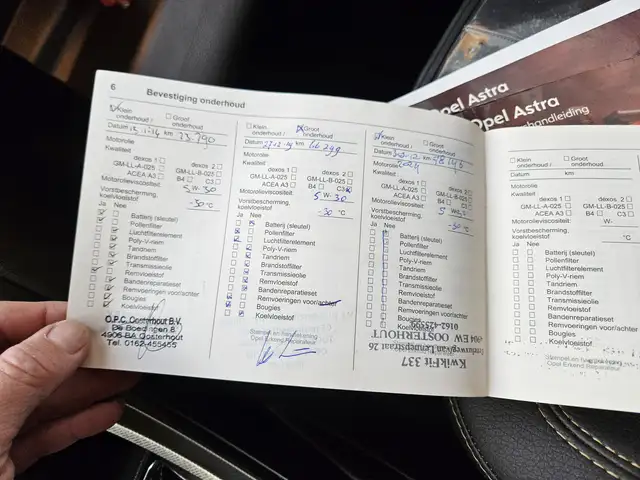 6
Bevestiging onderhoud
Klein onderhoud /
Groot onderhoud
Datum km 33.790
Motorolie
Kwaliteit
dexos 1
dexos 2
GM-LL-A-025
GM-LL-B-025
ACEA A3
B4
C3
Motorolieviscositeit: 5 W- 30
Vorstbescherming, koelvloeistof -30 °C
Ja Nee
Batterij (sleutel)
Pollenfilter
Luchtfilterelement
Poly-V-riem
Tandriem
Brandstoffilter
Transmissieolie
Remvloeistof
Bandenreparatieset
Remvoeringen voor/achter
Bougies
Koelvloeistof
O.P.C. Oosterhout B.V.
De Boedingen 8
4906 BA Oosterhout
Tel. 0162-455455
Klein onderhoud /
Groot onderhoud
Datum km
Motorolie:
Kwaliteit
dexos 1
dexos 2
GM-LL-A-025
GM-LL-B-025
ACEA A3
B4
C3
Motorolieviscositeit: 5 W- 30
Vorstbescherming, koelvloeistof -30 °C
Ja Nee
Batterij (sleutel)
Pollenfilter
Luchtfilterelement
Poly-V-riem
Tandriem
Brandstoffilter
Transmissieolie
Remvloeistof
Bandenreparatieset
Remvoeringen voor/achter
Bougies
Koelvloeistof
Stempel en handtekening
Opel Erkend Reparateur
Klein onderhoud /
Groot onderhoud
Datum km
Motorolie:
Kwaliteit
dexos 1
dexos 2
GM-LL-A-025
GM-LL-B-025
ACEA A3
B4
C3
Motorolieviscositeit: 5 W-
Vorstbescherming, koelvloeistof -30 °C
Ja Nee
Batterij (sleutel)
Pollenfilter
Luchtfilterelement
Poly-V-riem
Tandriem
Brandstoffilter
Transmissieolie
Remvloeistof
Bandenreparatieset
Remvoeringen voor/achter
Bougies
Koelvloeistof
KwikFit 337
26
EW OOSTERHOUT
Klein onderhoud /
Groot onderhoud
Datum km
Motorolie:
Kwaliteit
dexos 1
dexos 2
GM-LL-A-025
GM-LL-B-025
ACEA A3
B4
C3
Motorolieviscositeit: W-
Vorstbescherming, koelvloeistof °C
Ja Nee
Batterij (sleutel)
Pollenfilter
Luchtfilterelement
Poly-V-riem
Tandriem
Brandstoffilter
Transmissieolie
Remvloeistof
Bandenreparatieset
Remvoeringen voor/achter
Bougies
Koelvloeistof
Stempel en handtekening
Opel Erkend Reparateur
Opel Astra
Opel Astra
handleiding